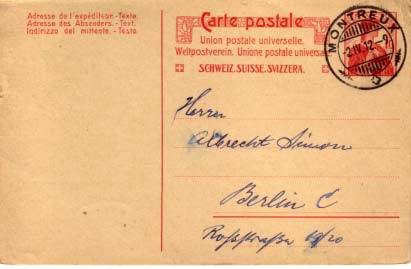 Adresse de l'expéditeur.-Texte.
Adresse des Absenders.-Text.
Indirizzo del mittente.-Testo.
Carte postale
Union postale universelle.
Weltpostverein. Unione postale universa
SCHWEIZ.SUISSE.SVIZZERA.
MONTREUX
2.IV.12.
Herrn
Albrecht Simon
Berlin C
Roßstraße 19/20